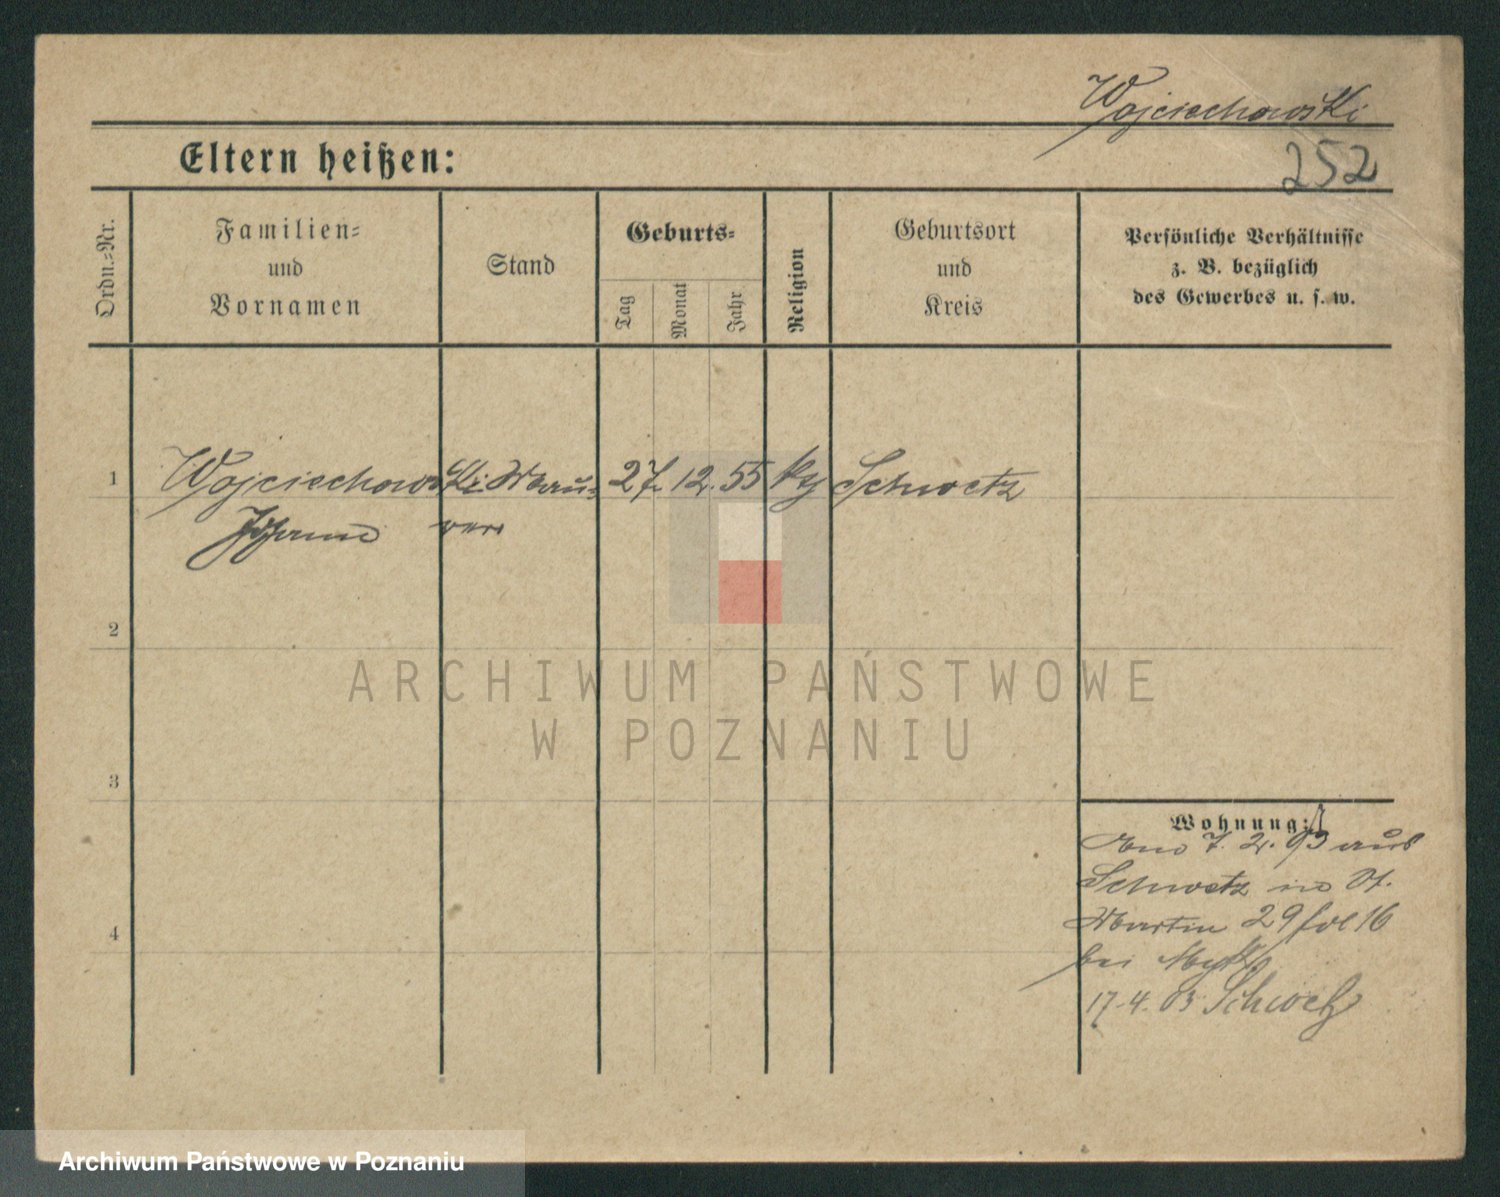 Wojciechowski
Eltern heißen:
252
Ordn.-Nr.
Familien-
und
Vornamen
Stand
Geburts-
Tag
Monat
Jahr
Religion
Geburtsort
und
Kreis
Persönliche Verhältnisse
z. B. bezüglich
des Gewerbes u. s. w.
1 Wojciechowski Mau- 27. 12. 55 ktj Schwetz
Johann rer
2
ARCHIWUM PAŃSTWOWE
W POZNANIU
3
Wohnung:
7. 2. 93 aus
Schwetz in St.
Martin 29 fol 16
bei
17.4.03 Schwetz
4
Archiwum Państwowe w Poznaniu